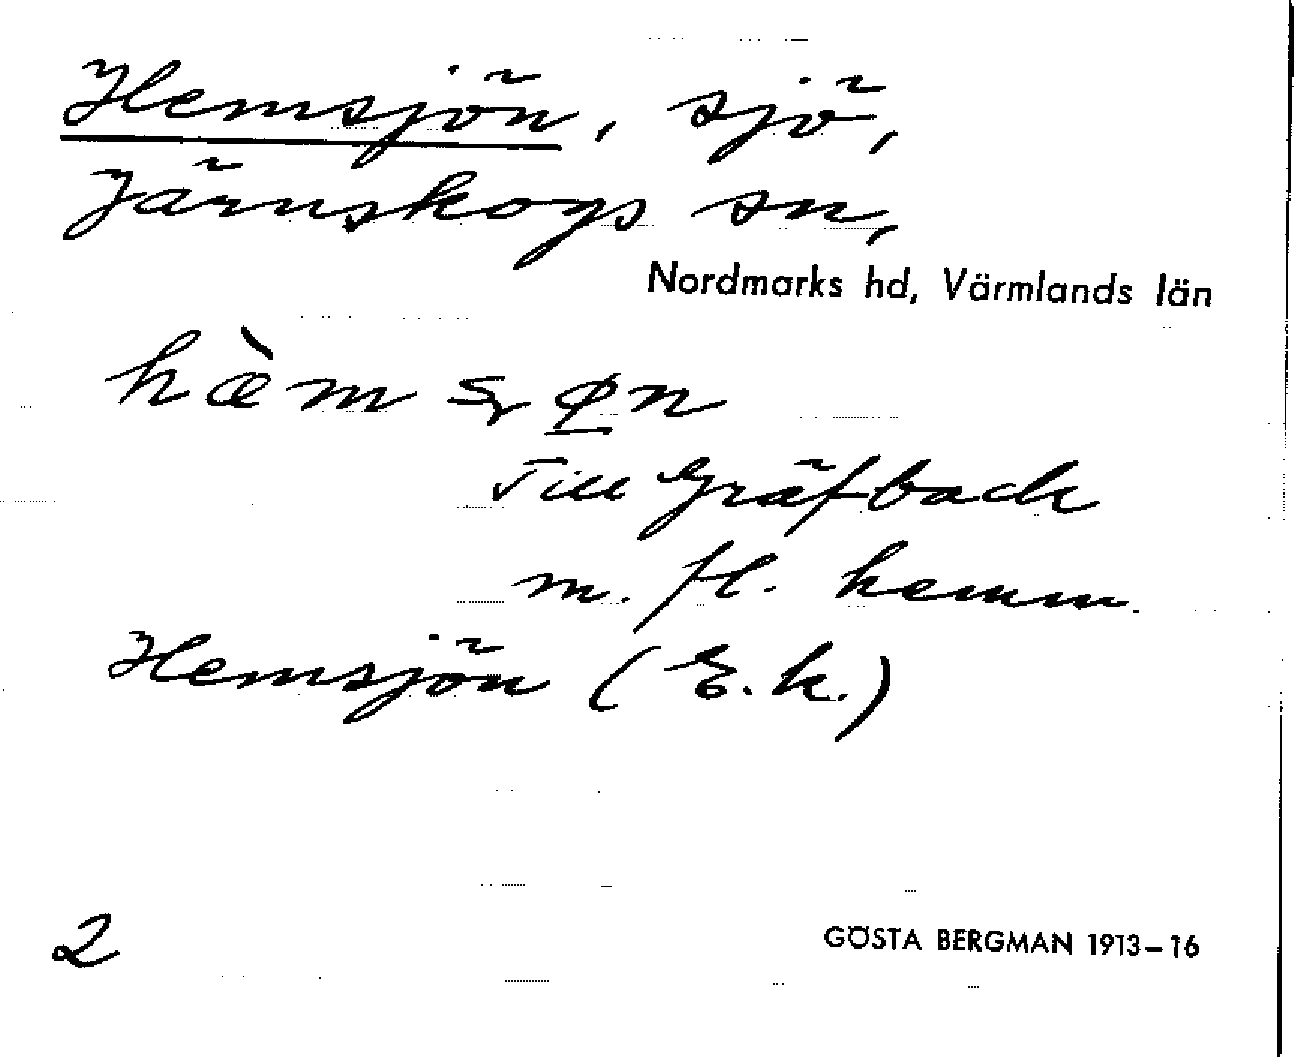 Hemsjön, sjö,
Järnskogs sn,
Nordmarks hd, Värmlands län
hæ̀m
Till Gräfback
m. fl. hemm.
Hemsjön (E.k.)
2
GÖSTA BERGMAN 1913–16